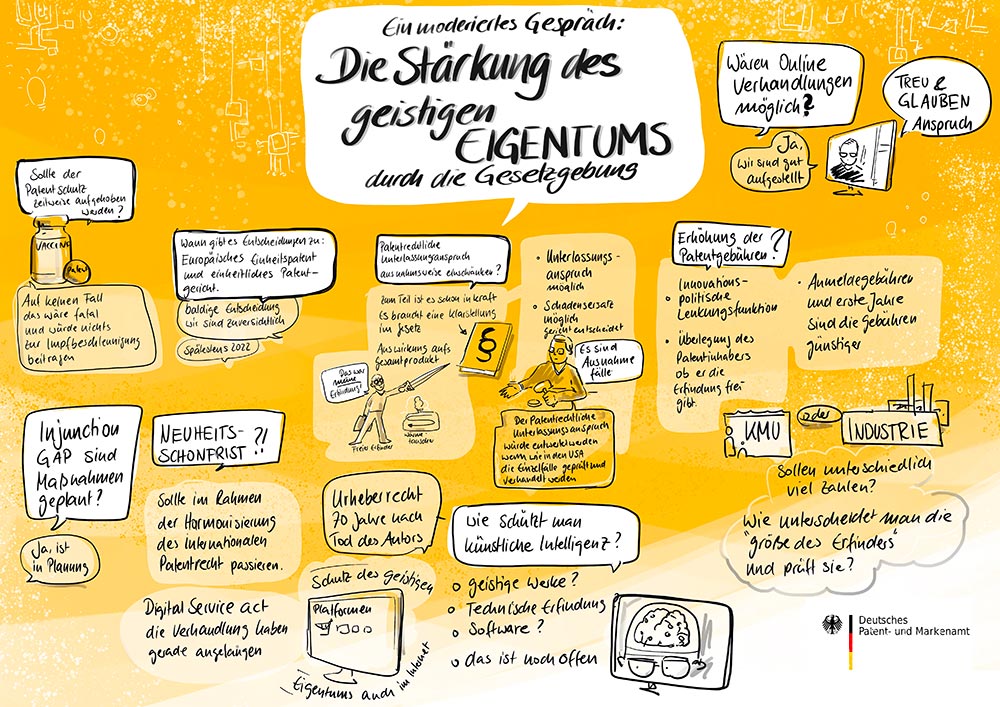 Ein moderiertes Gespräch:
Die Stärkung des
geistigen
EIGENTUMS
durch die Gesetzgebung
Wären Online
Verhandlungen
möglich?
TREU &
GLAUBEN
Anspruch
Ja,
wir sind gut
aufgestellt
Sollte der
Patentschutz
zeitweise aufgehoben
werden?
VACCINE
Patent
Auf keinen Fall
das wäre fatal
und würde nichts
zur Impfbeschleunigung
beitragen
Wann gibt es Entscheidungen zu:
Europäisches Einheitspatent
und einheitliches Patent-
gericht.
baldige Entscheidung
wir sind zuversichtlich
Spätestens 2022
Patentrechtliche
Unterlassungsanspruch
ausnahmsweise einschränken?
zum Teil ist es schon in kraft
Es braucht eine Klarstellung
im Gesetz
Auswirkung aufs
Gesamtprodukt
§
Das war
meine
Erfindung!
Freier Erfinder
Wärme-
tauscher
• Unterlassungs-
anspruch
möglich
• Schadensersatz
möglich
gericht entscheidet
Es sind
Ausnahme
fälle
Der Patentrechtliche
Unterlassungsanspruch
würde entwertet werden
wenn wie in den USA
die Einzelfälle geprüft und
verhandelt werden
Erhöhung der
Patentgebühren?
• Innovations-
politische
Lenkungsfunktion
• Überlegung des
Patentinhabers
ob er die
Erfindung frei
gibt.
• Anmeldegebühren
und erste Jahre
sind die Gebühren
günstiger
KMU
oder
INDUSTRIE
Sollen unterschiedlich
viel zahlen?
Wie unterscheidet man die
"größe des Erfinders"
und prüft sie?
Injunction
GAP sind
Maßnahmen
geplant?
Ja, ist
in Planung
NEUHEITS-
SCHONFRIST?!
Sollte im Rahmen
der Harmonisierung
des Internationalen
Patentrecht passieren.
Digital Service act
die Verhandlung haben
gerade angefangen
Urheberrecht
70 Jahre nach
Tod des Autors
Schutz des geistigen
Plattformen
Eigentums auch im Internet
Wie schützt man
künstliche Intelligenz?
o geistige Werke?
o Technische Erfindung
o Software?
o das ist noch offen
Deutsches
Patent- und Markenamt